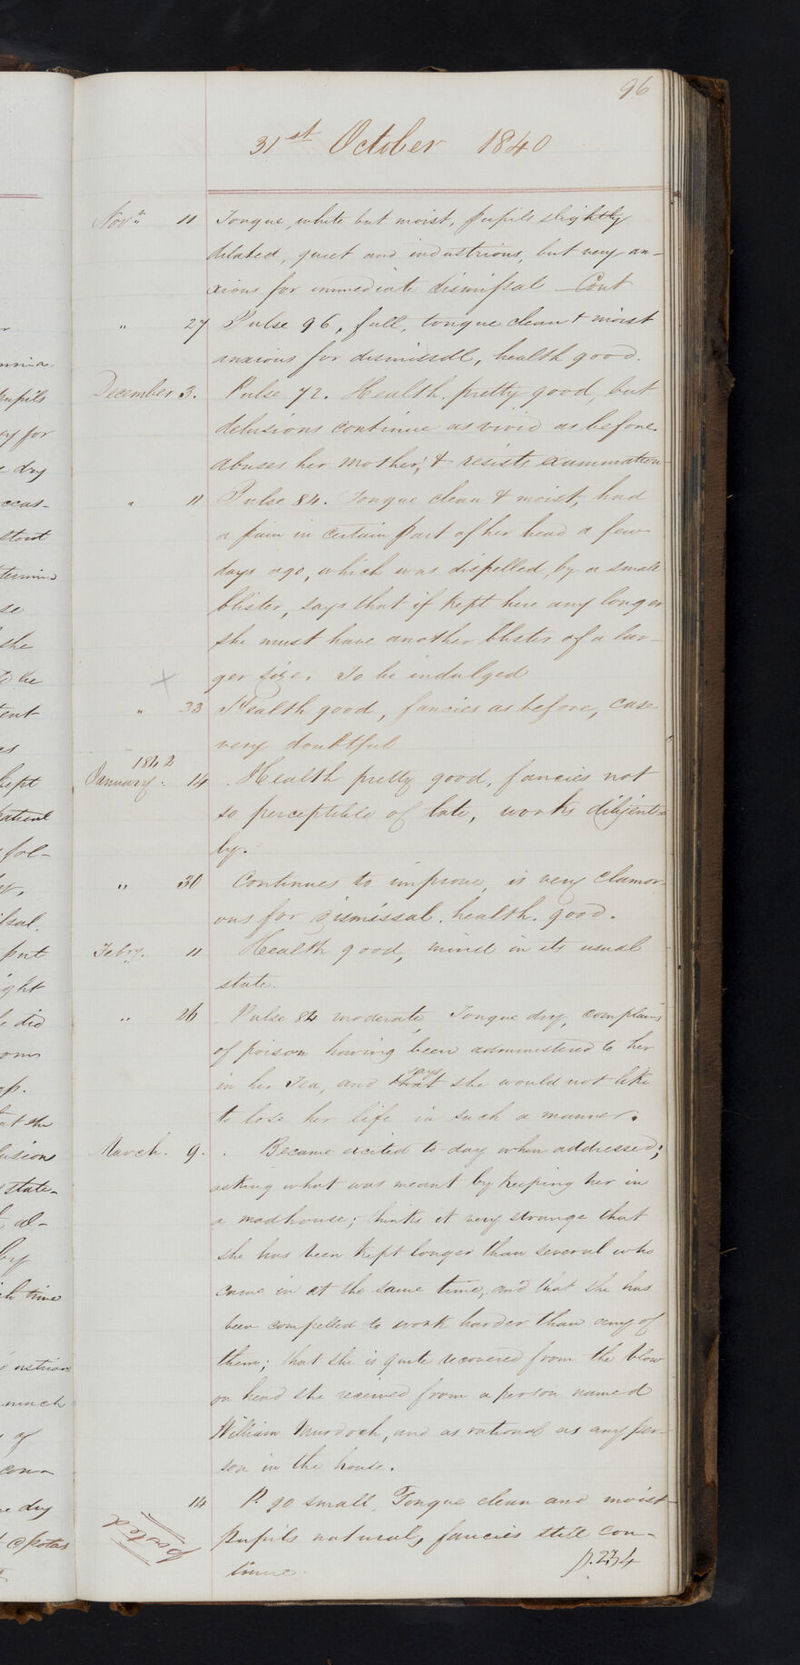 96
31st October 1840
Novr 11 Tongue, white but moist, pupils slightly
dilated, quiet and industrious, but very an-
xious for immediate dismissal — Cont
" 27 Pulse 96, full, tongue clean & moist
anxious for dismissall, health good.
December 3. Pulse 72. Health pretty good, but
delusions continue as vivid as before
abuses her mother, & resists examination
" 11 Pulse 84. Tongue clean & moist, had
a pain in certain part of her head a few
days ago, which was dispelled, by a small
blister, says that if kept here any longer
she must have another blister of a lar-
ger size. To be indulged
" 23 Health good, fancies as before, case
very doubtful
1842
January. 14 Health pretty good, fancies not
so perceptible of late, works diligent-
ly.
" 30 Continues to improve, is very clamor-
ous for dismissal. health. good.
Febry. 11 Health good, mind in its usual
state.
" 26 Pulse 84 moderate, Tongue dry, complains
of poison having been administered to her
says
in her Tea, and that she would not like
to lose her life in such a manner.
March. 9. Became excited to-day when addressed;
asking what was meant by keeping her in
a madhouse; thinks it very strange that
she has been kept longer than several who
came in at the same time, and that she has
been compelled to work harder than any of
them; that she is quite recovered from the blow
on head she received from a person named
William Murdoch, and as rational as any per-
son in the house.
14 P. 90 small, Tongue clean and moist
pupils natural, fancies still con-
tinue.
p. 234
posted